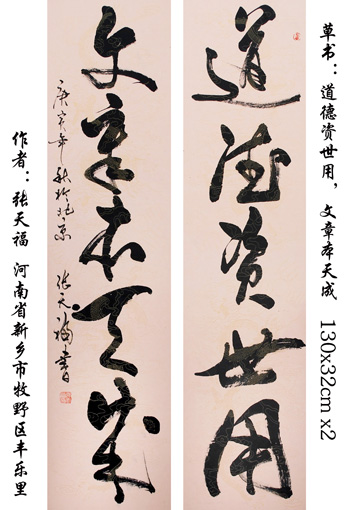 草书：道德资世用，文章本天成 130x32cm x2
道德资世用
文章本天成
庚寅年秋於北京 张天福书
作者：张天福 河南省新乡市牧野区丰乐里